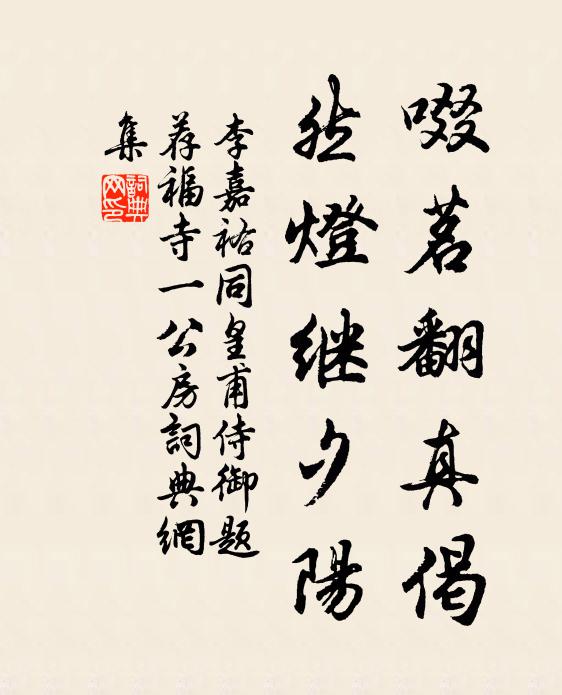 啜茗翻真偈
然燈继夕陽
李嘉祐同皇甫侍御题
荐福寺一公房詞典網
集
詞典
网印